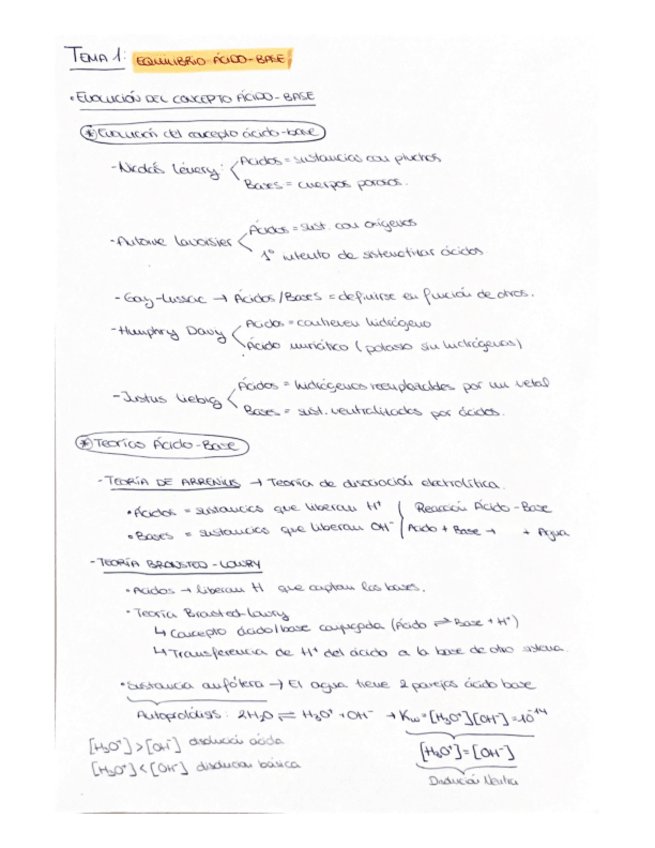 TEMA 1: EQUILIBRIO ÁCIDO-BASE
• EVOLUCIÓN DEL CONCEPTO ÁCIDO-BASE
* Evolución del concepto ácido-base
- Nicolás Lémery: Ácidos = sustancias con pinchos
Bases = cuerpos porosos.
- Antoine Lavoisier Ácidos = sust. con oxígenos
1º intento de sistematizar ácidos
- Gay-Lussac → Ácidos/Bases = definirse en función de otros.
- Humphry Davy Ácidos = contienen hidrógeno
Ácido muriático ( sin hidrógenos)
- Justus Liebig Ácidos = hidrógenos reemplazables por un metal
Bases = sust. neutralizadas por ácidos.
* Teorías Ácido-Base
- TEORÍA DE ARRENIUS → Teoría de disociación electrolítica.
• Ácidos = sustancias que liberan H⁺ Reacción Ácido-Base
• Bases = sustancias que liberan OH⁻ Ácido + Base → + Agua
- TEORÍA BRONSTED-LOWRY
• Ácidos → liberan H que captan las bases.
• Teoría Brosted-Lowry
↳ Concepto ácido/base conjugada (Ácido ⇌ Base + H⁺)
↳ Transferencia de H⁺ del ácido a la base de otro sistema.
• Sustancia anfótera → El agua tiene 2 parejas ácido base
Autoprotólisis: 2H₂O ⇌ H₃O⁺ + OH⁻ → Kw = [H₃O⁺][OH⁻] = 10⁻¹⁴
[H₃O⁺] > [OH⁻] disolución ácida
[H₃O⁺] = [OH⁻]
[H₃O⁺] < [OH⁻] disolución básica
Disolución Neutra